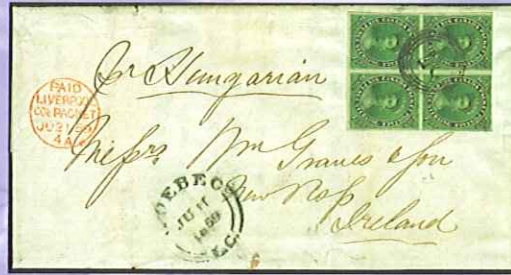 Pr Hungarian
PAID
LIVERPOOL
COL PACKET
JU 21 59
4A
Messrs Wm Graves & Son
New Ross
Ireland
QUEBEC
JU 11
1859
L.C.